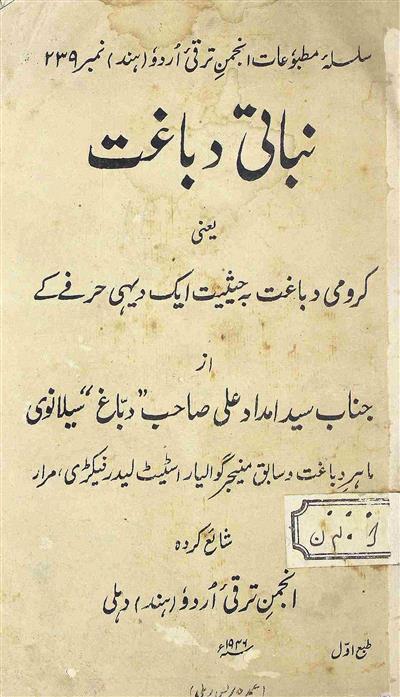 سلسلۂ مطبوعات انجمنِ ترقئ اُردو (ہند) نمبر ۲۳۹
نباتی دباغت
یعنی
کرومی دباغت بہ حیثیت ایک دیہی حرفے کے
از
جناب سید امداد علی صاحب "دبّاغ" سیلانوی
ماہرِ دباغت و سابق منیجر گوالیار اسٹیٹ لیدر فیکڑی، مرار
شائع کردہ
انجمنِ ترقئ اُردو (ہند) دہلی
طبع اوّل ۱۹۴۶ء